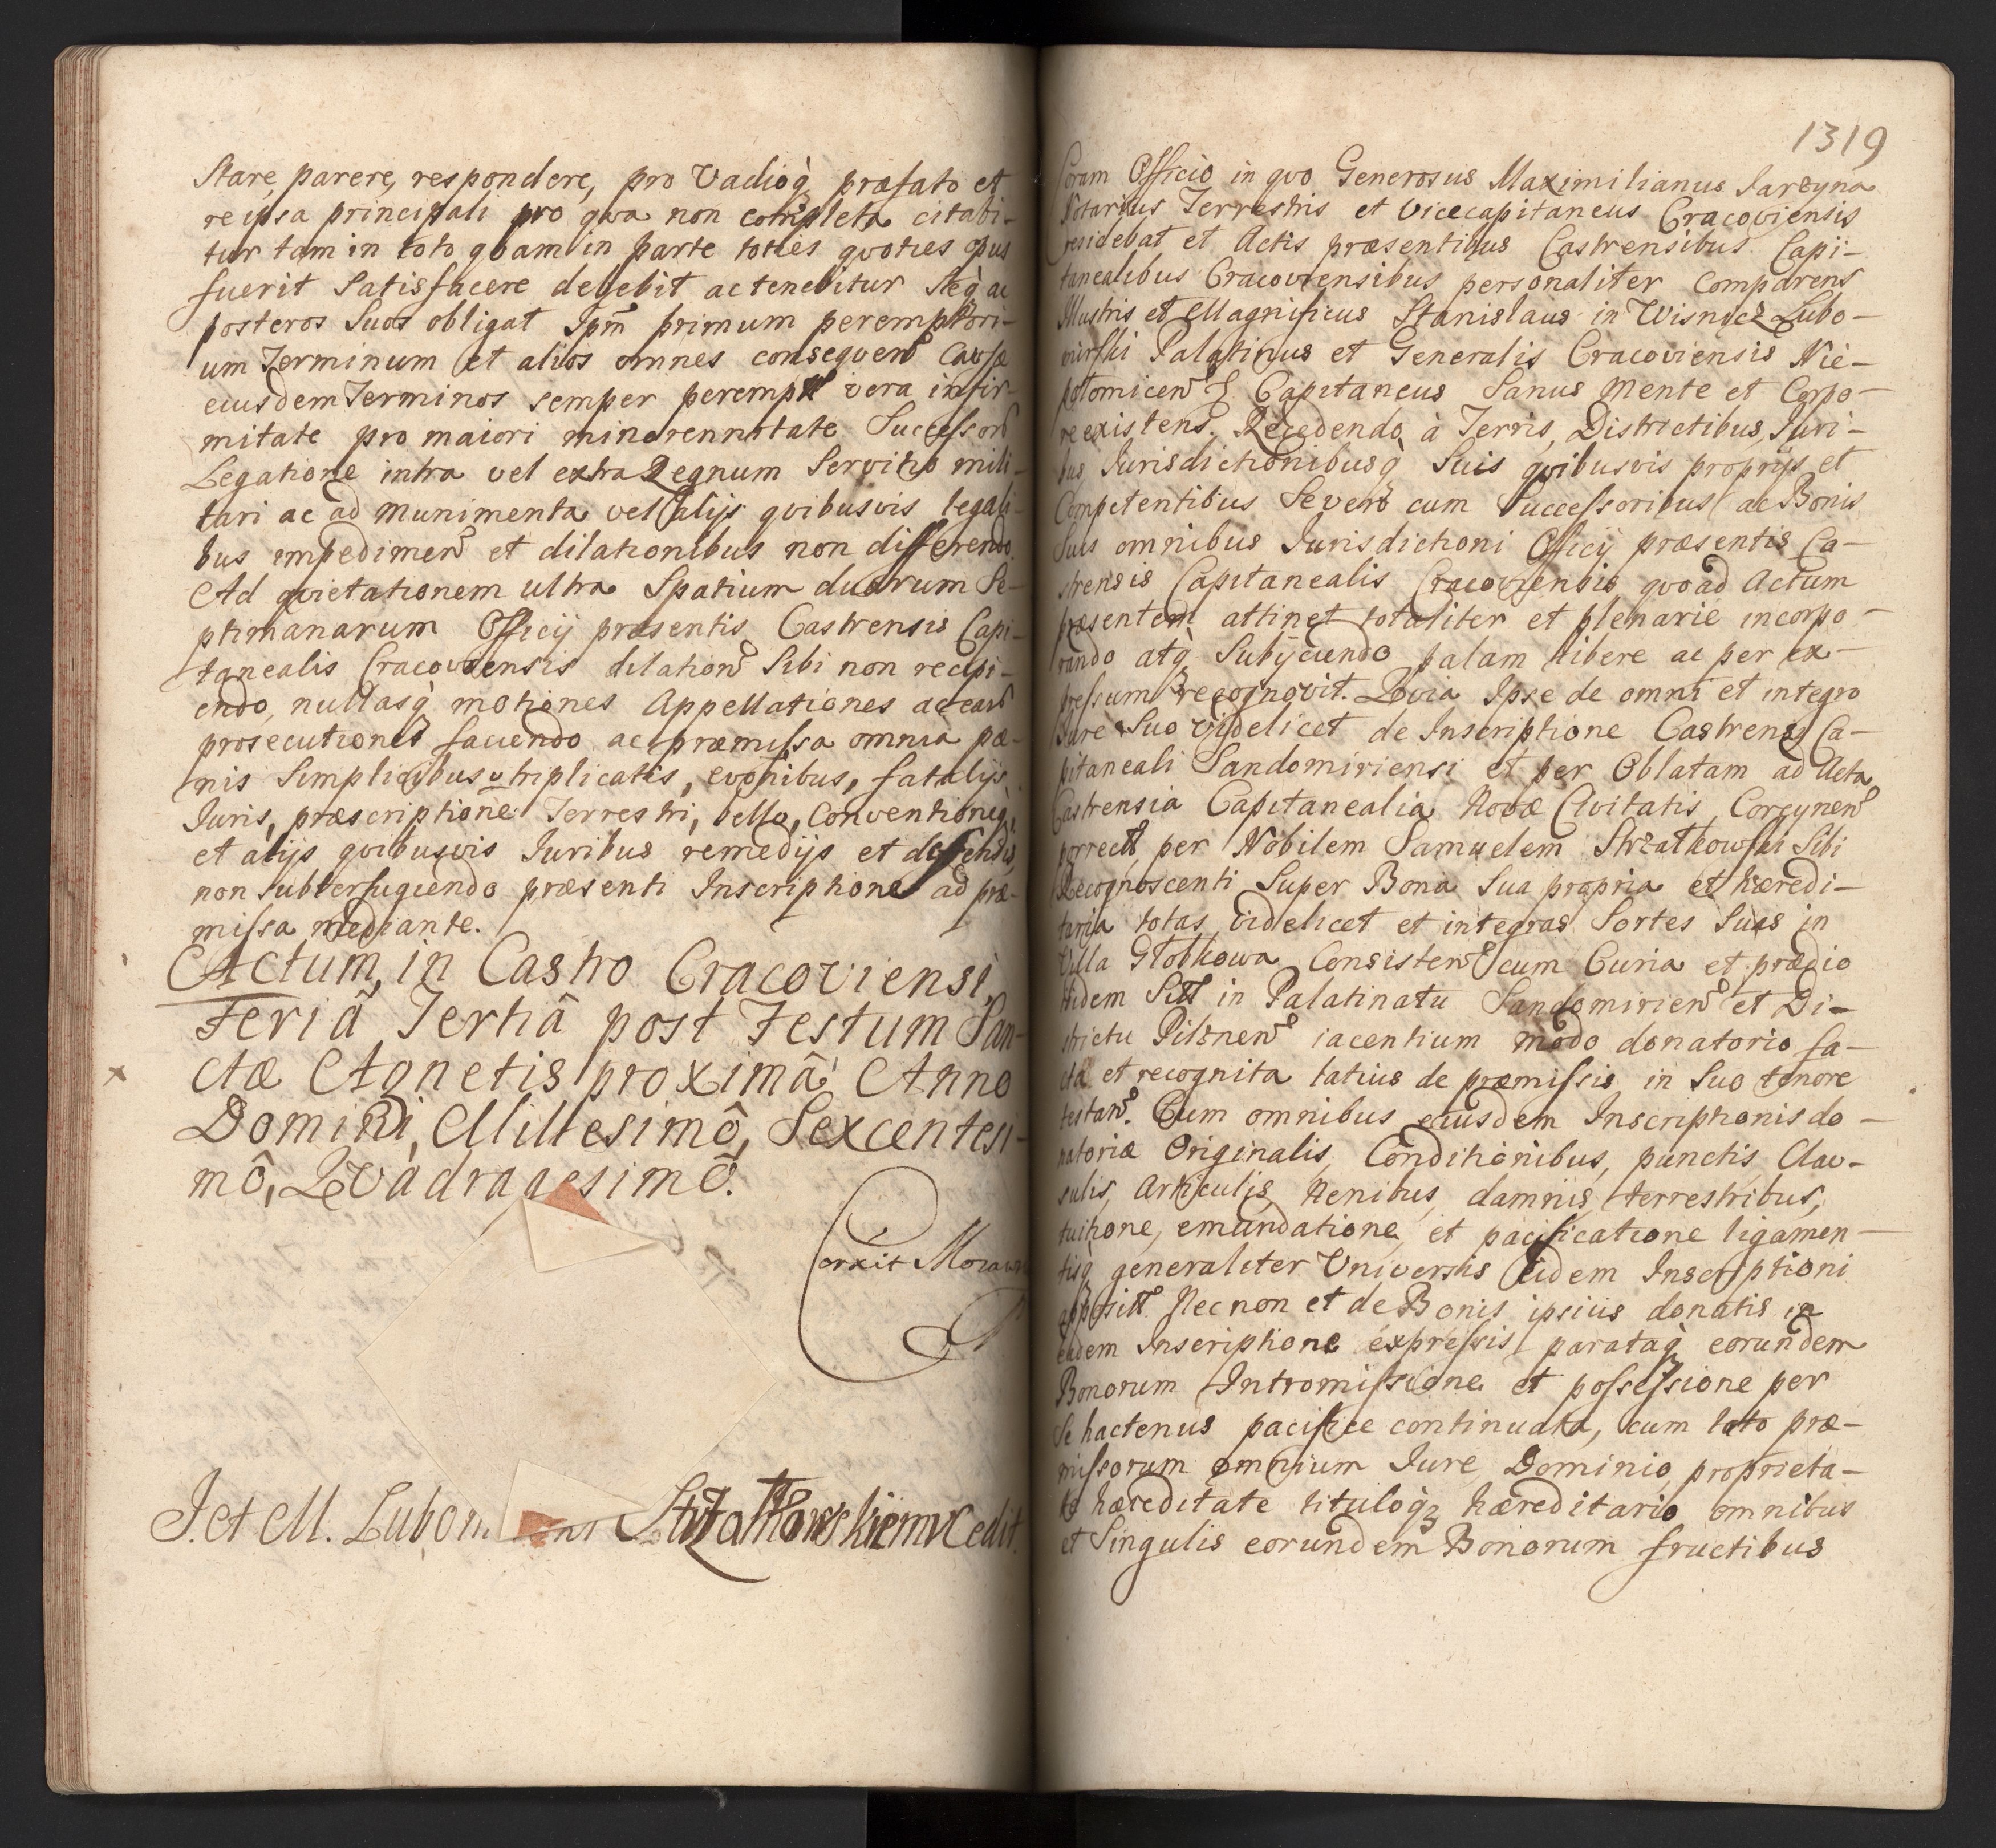 Stare, parere, respondere, pro Vadioq̀ præfato et
re ipsa principali pro qva non completa citabi-
tur tam in toto qvam in parte toties qvoties opus
fuerit Satisfacere debebit ac tenebitur Seq̀ ac
posteros Suos obligat Ipm̃ primum peremptori-
um Terminum et alios omnes conseqven Causæ
eiusdem Terminos semper perempt vera infir-
mitate pro maiori minorennitate Successor
Legatione intra vel extra Regnum Servitio mili-
tari ac ad munimenta vel alijs qvibusvis legali-
bus impedimen et dilationibus non differendo.
Ad qvietationem ultra Spatium duarum Se-
ptimanarum Officij præsentis Castrensis Capi-
tanealis Cracoviensis dilation Sibi non recipi-
endo, nullasq̀ motiones Appellationes ac ear
prosecutiones faciendo ac præmissa omnia pæ-
nis Simplicibus triplicatis, evonibus, fatalijs
Juris, præscriptione Terrestri, bello, Conventioneq̀,
et alijs qvibusvis Juribus remedijs et defensis,
non subterfugiendo præsenti Inscriptione ad præ-
missa mediante.
Actum, in Castro Cracoviensi,
Feriâ Tertiâ post Festum San-
ctæ Agnetis proximâ Anno
Domini, Millesimô, Sexcentesi-
mô, Qvadragesimô.
Corxit
J. et M. Lubom cedit.
1319
Coram Officio in qvo Generosus Maximilianus Jarzyna
Notarius Terrestris et Vicecapitaneus Cracoviensis
residebat et Actis præsentibus Castrensibus Capi-
tanealibus Cracoviensibus personaliter Comparens
Illustris et Magnificus Stanislaus in Wisnicz Lubo-
mirski Palatinus et Generalis Cracoviensis Nie-
potomicen & Capitaneus Sanus Mente et Corpo-
re existens. Recedendo à Terris, Districtibus, Juri-
bus Jurisdictionibusq̀ Suis qvibusvis proprijs et
Competentibus Seven cum Successoribus ac Bonis
Suis omnibus Jurisdictioni Officij præsentis Ca-
strensis Capitanealis Cracoviensis qvoad Actum
præsentem attinet totaliter et plenarie incorpo-
rando atq̀ Subijciendo palam libere ac per ex-
pressum recognovit. Qvia Ipse de omni et integro
Jure Suo videlicet de Inscriptione Castrens Ca-
pitaneali Sandomiriensi et per Oblatam ad Acta
Castrensia Capitanealia Novæ Civitatis Corcynen
porrect, per Nobilem Samuelem Strzatkowski Sibi
Recognoscenti Super Bona Sua propria et hæredi-
taria totas videlicet et integras Sortes Suas in
Villa Głobikowa Consisten cum Curia et prædio
ibidem Sitt in Palatinatu Sandomirien et Di-
strictu Pilznen iacentium modo donatorio fa-
cta et recognita latius de præmissis in Suo tenore
testan. Cum omnibus eiusdem Inscriptionis do-
natoriæ Originalis, Conditionibus, punctis Clau-
sulis, Articulis, Nenibus, damnis, terrestribus,
tuitione, emundatione, et pacificatione ligamen-
tisq̀ generaliter Universis eidem Inscriptioni
apposit Nec non et de Bonis ipsius donatis in
eadem Inscriptione expressis parataq̀ eorundem
Bonorum Intromissione et possessione per
Se hactenus pacifice continuata, cum toto præ-
missorum omnium Jure, Dominio, proprieta-
te hæreditate tituloq̀ hæreditario omnibus
et Singulis eorundem Bonorum fructibus